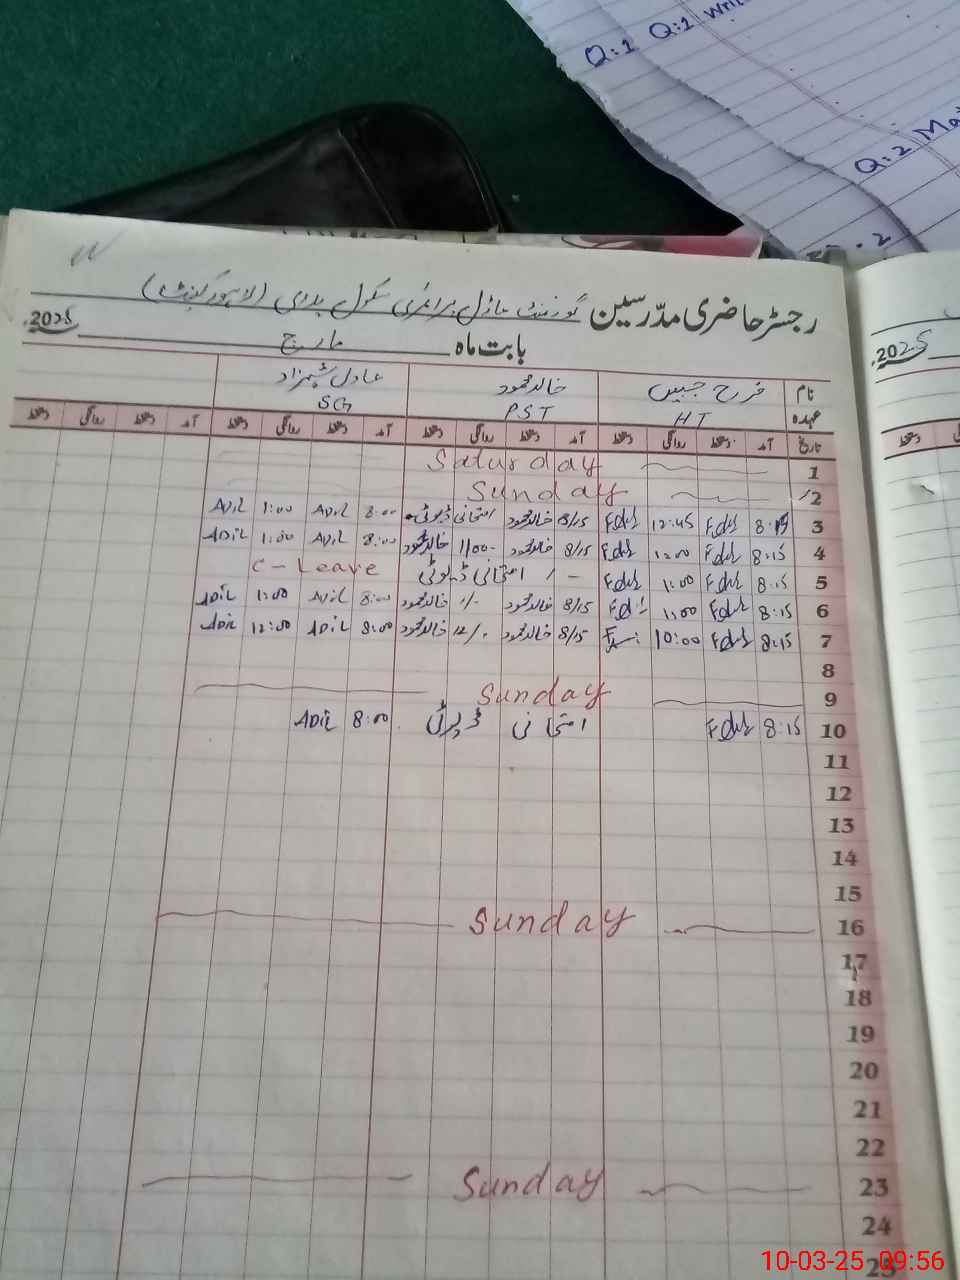 Q:1 Q:1
Q:2
رجسٹر حاضری مدرسین گورنمنٹ ماڈل پرائمری سکول (لاہور کینٹ)
بابت ماہ مارچ 2025ء
2025
نام فرح جبیں خالد محمود عادل شہزاد
عہدہ HT PST SG
تاریخ آمد دستخط روانگی دستخط آمد دستخط روانگی دستخط آمد دستخط روانگی دستخط آمد دستخط روانگی دستخط
1 Saturday
2 Sunday
3 8:15 12:45 8/15 خالد محمود امتحانی ڈیوٹی 8:00 Adil 1:00 Adil
4 8:15 12:00 8/15 خالد محمود 1/00 خالد محمود 8:00 Adil 1:00 Adil
5 8:15 1:00 امتحانی ڈیوٹی C-Leave
6 8:15 1:00 8/15 خالد محمود 1/- خالد محمود 8:00 Adil 1:00 Adil
7 8:15 10:00 8/15 خالد محمود 12/- خالد محمود 8:00 Adil 12:00 Adil
8
9 Sunday
10 8:15 امتحانی ڈیوٹی 8:00 Adil
11
12
13
14
15
16 Sunday
17
18
19
20
21
22
23 Sunday
24
25
10-03-25 09:56